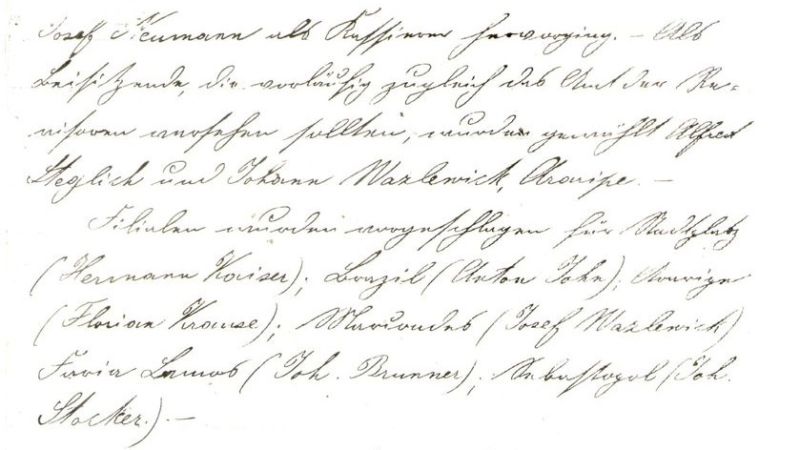 Josef Neumann als Kassierer hervorging. – Als
Beisitzende, die vorläufig zugleich das Amt der Re-
visoren versehen sollten, wurden gewählt Alfred
Steglich und Johann Wazlewick, Araripe. –
Filialen wurden vorgeschlagen für Stadtplatz
(Hermann Kaiser); Brazil (Anton John); Araripe
(Florian Krause); Marcondes (Josef Wazlewick)
Faria Lemos (Joh. Brunner); Sebastopol (Joh.
Stocker.). –